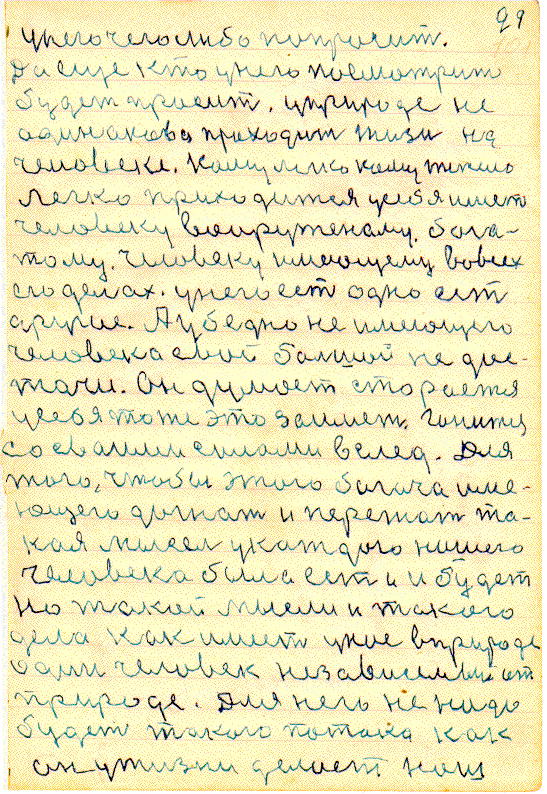 99
унего чего либо попросит.
Да еще кто унего посмотрит
будет просит. уприроде не
одинакова проходит жизн на
человеке. Кому легко кому тяжело
легко приходится усебя имет
человеку вооруженому. бога-
тому. человеку имеющему вовсех
его делах. унего ест одно ест
другие. А убедно не имеющего
человека свой болшой не дос-
тачи. Он думает старается
усебя тоже это займет. гонится
со своими силами вслед. Для
того, чтобы этого богача име-
ющего догнат и перегнат та-
кая мысел укаждого нищего
человека была ест и и будет
Но такой мысли и такого
дела как имет уное вприроде
один человек независемый от
природе. Для него не надо
будет такого потока как
он ужизни делает наш